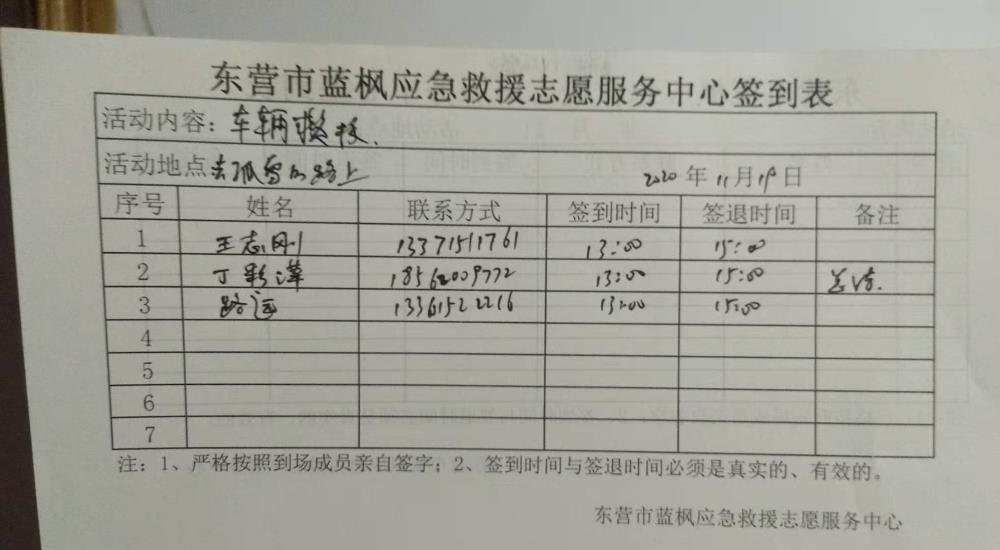 东营市蓝枫应急救援志愿服务中心签到表
活动内容：车辆救援.
活动地点 去孤岛的路上 2020 年 11 月 19 日
序号 姓名 联系方式 签到时间 签退时间 备注
1 王志刚 13371511761 13:00 15:00
2 丁彩泽 18562009772 13:00 15:00
3 路运 13361522216 13:00 15:00
4
5
6
7
注：1、严格按照到场成员亲自签字；2、签到时间与签退时间必须是真实的、有效的。
东营市蓝枫应急救援志愿服务中心